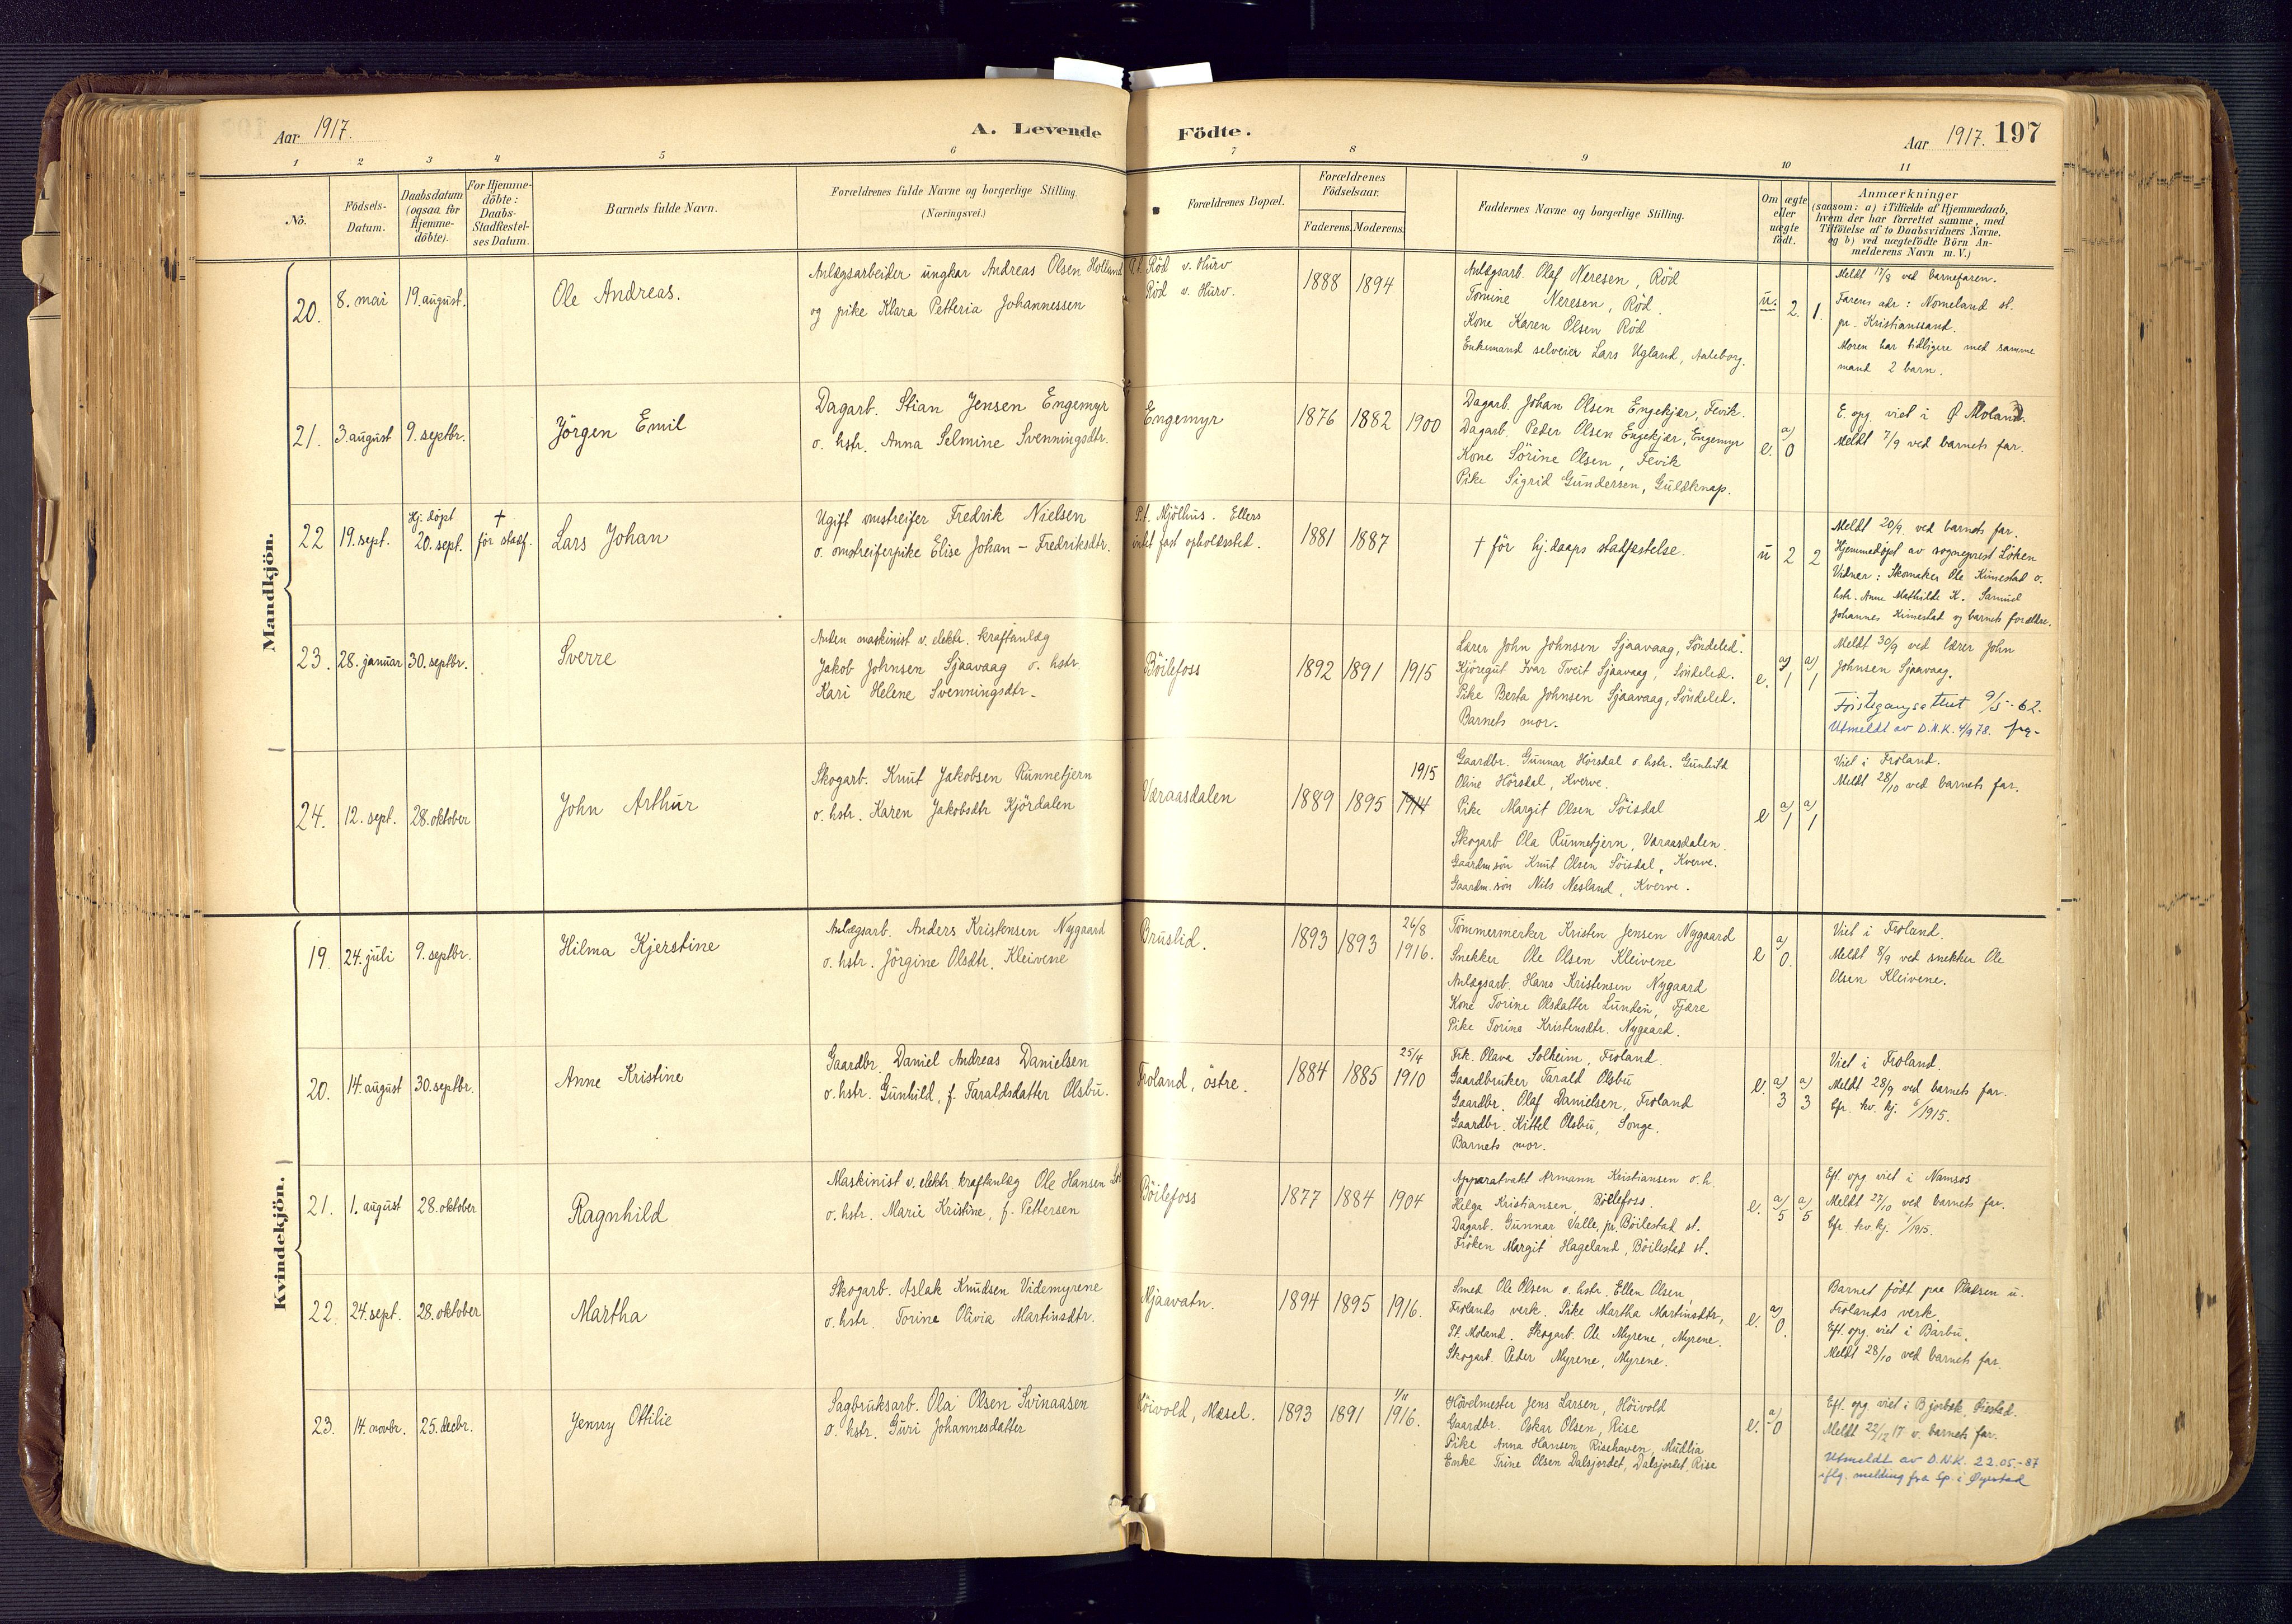 Aar 1917.
A. Levende
Födte.
Aar 1917. 197
1 2 3 4 5 6 7 8 9 10 11
No.
Födsels-
Datum.
Daabsdatum
(ogsaa for
Hjemme-
döbte).
For Hjemme-
döbte:
Daabs-
Stadfæstel-
ses Datum.
Barnets fulde Navn.
Forældrenes fulde Navne og borgerlige Stilling.
(Næringsvei.)
Forældrenes Bopæl.
Forældrenes
Födselsaar.
Faderens. Moderens.
Faddernes Navne og borgerlige Stilling.
Om ægte
eller
uægte
födt.
Anmærkninger
(saasom: a) i Tilfælde af Hjemmedaab,
hvem der har forrettet samme, med
Tilföielse af to Daabsvidners Navne.
og b) ved uægtefödte Börn An-
melderens Navn m. V.)
Mandkjön.
20.
8. mai
19. august.
Ole Andreas.
Anlægsarbeider ungkar Andreas Olsen Holland
og pike Klara Petteria Johannessen
Röd v. Hurv
Röd v. Hurv.
1888 1894
Anlægsarb. Olaf Neresen, Röd
Tomine Neresen, Röd.
Kone Karen Olsen Röd
Enkemand selveier Lars Ugland,
u. 2. 1.
Meldt 17/8 ved barnefaren.
Farens adr: Nomeland st.
pr. Kristianssand.
Moren har tidligere med samme
mand 2 barn.
21.
3. august
9. septbr.
Jörgen Emil
Dagarb. Stian Jensen Engemyr
o. hstr. Anna Selmine Svenningsdtr.
Engemyr
1876 1882 1900
Dagarb. Johan Olsen Engekjær, Fevik.
Dagarb. Peder Olsen Engekjær, Engemyr
Kone Sörine Olsen, Fevik
Pike Sigrid Gundersen, Guldknap.
e. a) 0
E. opg. viet i Ø Moland.
Meldt 7/9 ved barnets far.
22
19. sept.
Hj. döpt
20. sept.
†
för stadf.
Lars Johan
Ugift omstreifer Fredrik Nielsen
o. omstreiferpike Elise Johan - Fredriksdtr.
P.t. Mjölhus. Ellers
intet fast opholdssted.
1881 1887
† för hj. daaps stadfæstelse.
u 2 2
Meldt 20/9 ved barnets far.
Hjemmedöpt av sogneprest Löken
Vidner: Skomaker Ole Kimestad o.
hstr. Anne Mathilde K. Samuel
Johannes Kimestad og barnets forældre.
23.
28. januar
30. septbr.
Sverre
Anden maskinist v. elektr. kraftanlæg
Jakob Johnsen Sjaavaag o. hstr.
Kari Helene Svenningsdtr.
Böilefoss
1892 1891 1915
Lærer John Johnsen Sjaavaag, Söndeled.
Kjöregut Ivar Tveit Sjaavaag, Söndeled.
Pike Berta Johnsen Sjaavaag, Söndeled.
Barnets mor.
e. a) 1 a) 1
Meldt 30/9 ved lærer John
Johnsen Sjaavaag.
Förstegangsattest 9/5-62.
Utmeldt av D.N.K. 4/9 78.
24.
12. sept.
28. oktober
John Arthur
Skogarb. Knut Jakobsen Runnetjern
o. hstr. Karen Jakobsdtr Kjördalen
Væraasdalen
1889 1895 1915
1914
Gaardbr. Gunnar Hörsdal o. hstr. Gunhild
Oline Hörsdal, Kverve.
Pike Margit Olsen Söisdal
Skogarb Ola Runnetjern, Væraasdalen.
Gaardm.sön Knut Olsen Söisdal, Kverve.
Gaardm.sön Nils Nesland, Kverve.
e a) 1 a) 1
Viet i Froland.
Meldt 28/10 ved barnets far.
Kvindekjön.
19.
24. juli
9. septbr.
Hilma Kjerstine
Anlægsarb. Anders Kristensen Nygaard
o. hstr. Jörgine Olsdtr. Kleivene
Bruslid.
1893 1893 26/8
1916.
Tömmermerker Kristen Jensen Nygaard
Snekker Ole Olsen Kleivene
Anlægsarb. Hans Kristensen Nygaard
Kone Torine Olsdatter Lunden, Fjære
Pike Torine Kristensdtr. Nygaard.
e a) 0.
Viet i Froland.
Meldt 8/9 ved snekker Ole
Olsen Kleivene.
20.
14. august
30. septbr.
Anne Kristine
Gaardbr. Daniel Andreas Danielsen
o. hstr. Gunhild, f. Taraldsdatter Olsbu.
Froland, östre.
1884 1885 25/4
1910
Frk. Olava Solheim, Froland.
Gaardbruker Tarald Olsbu
Gaardbr. Olaf Danielsen, Froland
Gaardbr. Kittel Olsbu, Songe.
Barnets mor.
e. a) 3 a) 3
Viet i Froland.
Meldt 28/9 ved barnets far.
Cfr. kv. kj. 6/1915.
21.
1. august
28. oktober
Ragnhild
Maskinist v. elektr. kraftanlæg Ole Hansen
o. hstr. Marie Kristine, f. Pettersen
Böilefoss
1877 1884 1904
Apparatvakt Armann Kristiansen o. h.
Helga Kristiansen, Böilefoss.
Dagarb. Gunnar Valle, pr. Böilestad st.
Fröken Margit Hageland, Böilestad st.
e. a) 5 a) 5
Eft. opg viet i Namsos
Meldt 27/10 ved barnets far.
Cfr. kv. kj. 1/1915.
22.
24. sept.
28. oktober
Martha
Skogarb. Aslak Knudsen Videmyrene
o. hstr. Torine Olivia Martinsdtr.
Mjaavatn.
1894 1895 1916.
Smed Ole Olsen o. hstr. Ellen Olsen,
Frolands verk. Pike Martha Martinsdtr,
Ø. Moland. Skogarb. Ole Myrene, Myrene.
Skogarb. Peder Myrene, Myrene.
e. a) 0.
Barnet födt paa Pladsen u.
Frolands verk.
Eft. opg. viet i Barbu.
Meldt 28/10 ved barnets far.
23.
14. novbr.
25. decbr.
Jenny Ottilie
Sagbruksarb. Ola Olsen Svinaasen
o. hstr. Guri Johannesdatter
Höivold, Mæsel.
1893 1891 1/11
1916.
Hövelmester Jens Larsen, Höivold
Gaardbr. Oskar Olsen, Rise
Pike Anna Hansen Risehaven, Mudlia
Enke Trine Olsen Dalsjordet, Dalsjordet, Rise
e. a) 0
Eft. opg. viet i
Meldt 22/12 17 v. barnets far.
Utmeldt av D.N.K. 22.05.-87
iflg. melding fra Sp. i Øyestad